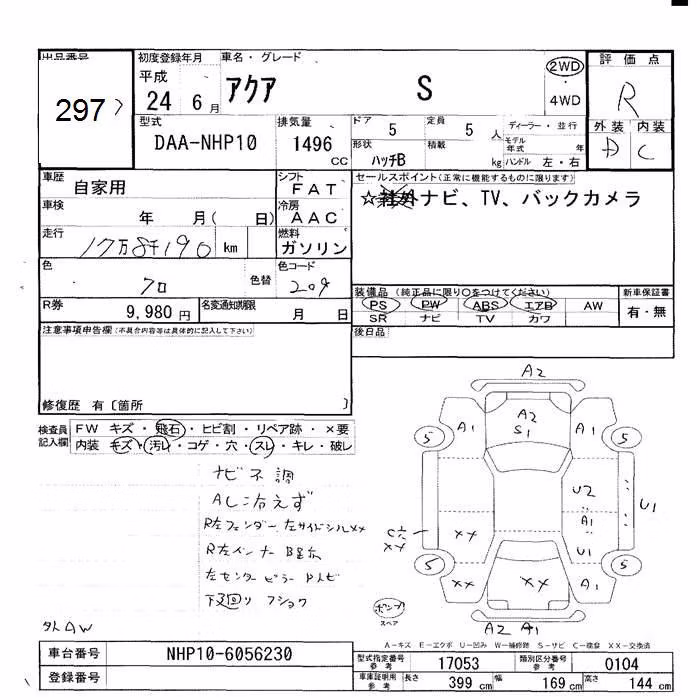 出品番号 初度登録年月 車名・グレード 評価点
297
平成 24 6月 アクア S 2WD ・ 4WD R
外装 内装
D C
型式 排気量 ドア 定員 ディーラー・並行
DAA-NHP10 1496 CC 5 5 人 モデル年式 年
形状 ハッチB 積載 kg ハンドル 左・右
車歴 自家用 シフト FAT セールスポイント(正常に機能するものに限ります)
☆社外ナビ、TV、バックカメラ
車検 年 月( 日) 冷房 AAC
走行 17万8千190 km 燃料 ガソリン
色 クロ 色替 色コード 209
装備品 (純正品に限り○をつけてください) 新車保証書
PS PW ABS エアB AW 有・無
SR ナビ TV カワ
R券 9,980円 名変通知期限 月 日
後日品
注意事項申告欄(不具合内容等は具体的に記入して下さい)
修復歴 有〔箇所 〕
検査員記入欄 FW キズ・飛石・ヒビ割・リペア跡・×要
内装 キズ・汚レ・コゲ・穴・スレ・キレ・破レ
ナビ不調
ACン冷えず
R左フェンダー 左サイドシルXX
R左インナー
左センターピラー
下廻り
外AW
A2
A2
S1
A1 A1
5 5
U2
A1
U1
U1
XX
XX
XX XX A1
5 5
A2 A1
スペア
A-キズ E-エクボ U-凹み W-補修跡 S-サビ C-腐食 XX-交換済
車台番号 NHP10-6056230
登録番号
型式指定番号参考 17053 類別区分番号参考 0104
車庫証明用参考 長さ 399 cm 幅 169 cm 高さ 144 cm